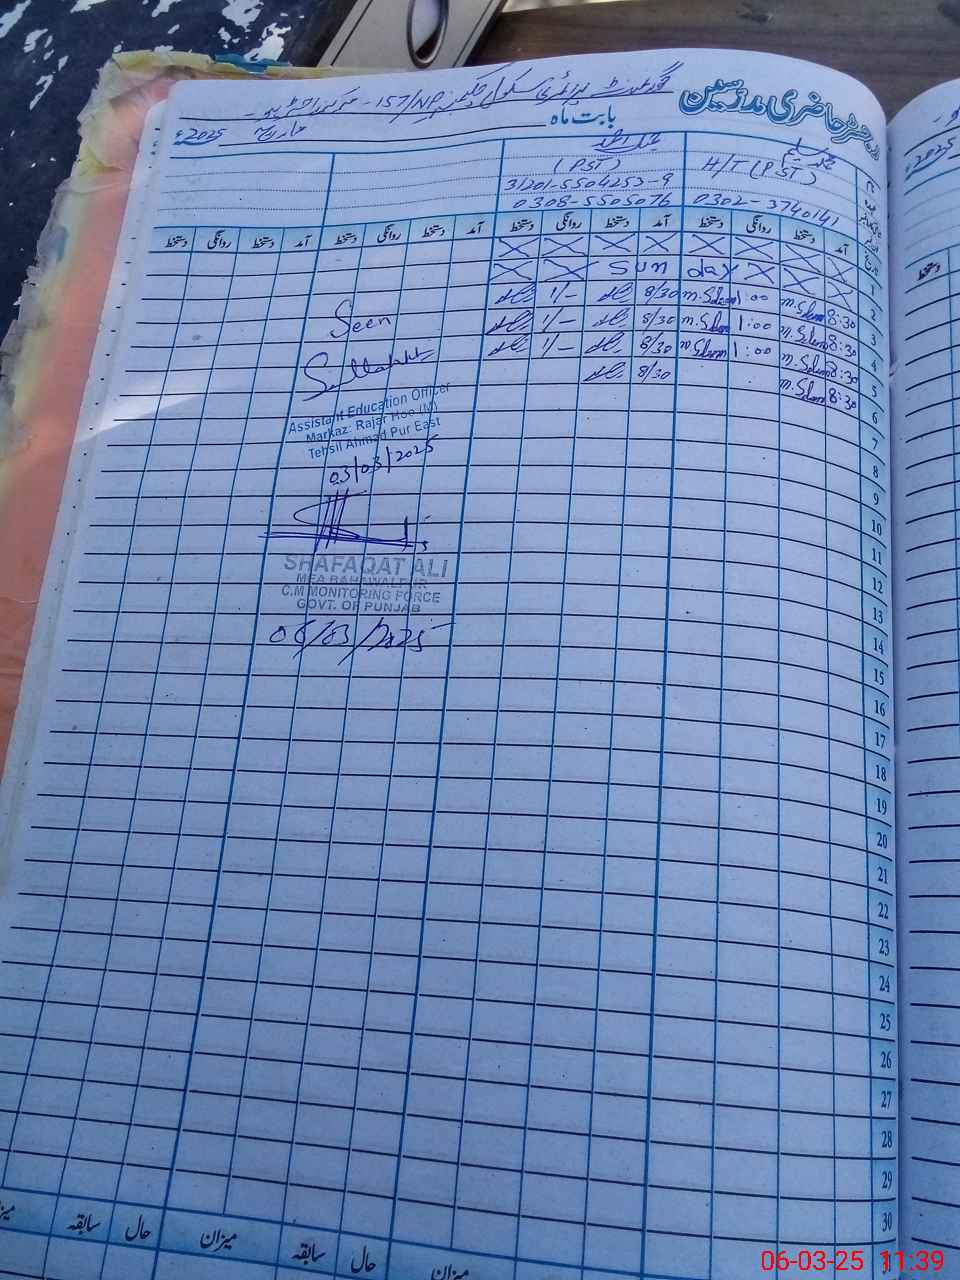 رجسٹر حاضری مدرسین
گورنمنٹ پرائمری سکول چک نمبر 157/NP - مرکز
بابت ماہ مارچ 2025ء
محمد سلیم
H/T (PST)
0302-3740141
(PST)
31201-5504253-9
0308-5505076
آمد دستخط روانگی دستخط آمد دستخط روانگی دستخط آمد دستخط روانگی دستخط آمد دستخط روانگی دستخط
1
2 Sunday
3 8:30 m.Saleem 1:00 m.Saleem 8/30 1/-
4 8:30 m.Saleem 1:00 m.Saleem 8/30 1/-
5 8:30 m.Saleem 1:00 m.Saleem 8/30 1/-
6 8:30 m.Saleem 8/30
7
8
9
10
11
12
13
14
15
16
17
18
19
20
21
22
23
24
25
26
27
28
29
30
Seen
Assistant Education Officer
Markaz: Rajar Hoo (M)
Tehsil Ahmad Pur East
03/03/2025
SHAFAQAT ALI
MEA BAHAWALPUR
C.M MONITORING FORCE
GOVT. OF PUNJAB
06/03/2025
میزان حال سابقہ میزان حال سابقہ
2025ء
دستخط
06-03-25 11:39